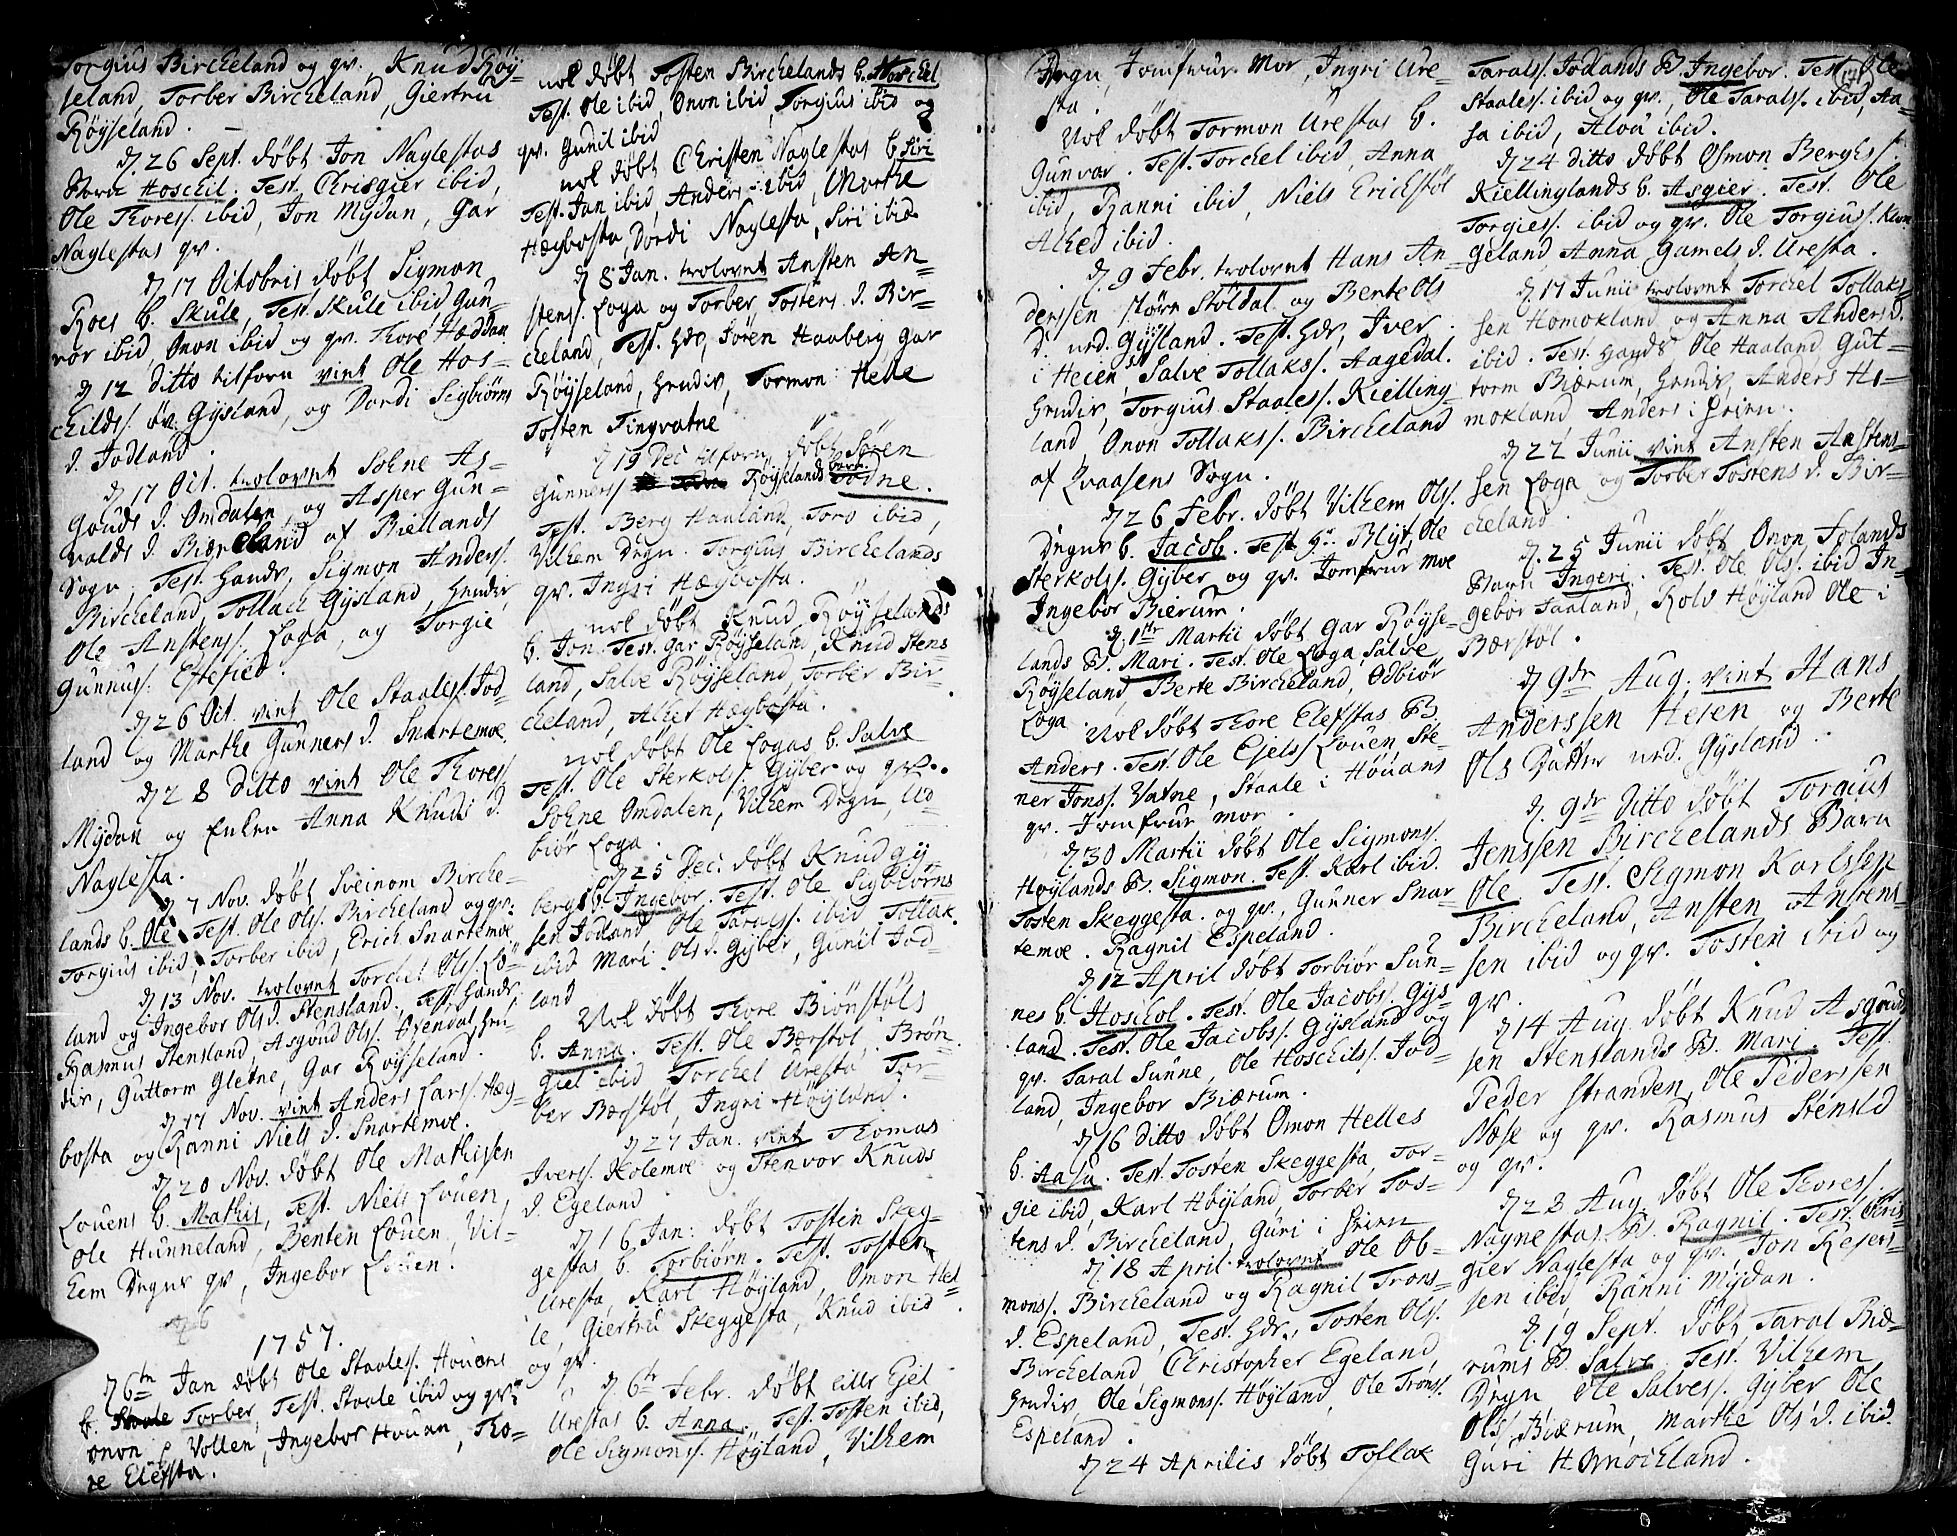 Torgius Bircheland og qv. Knud Röÿ-
seland, Torber Bircheland, Giertru
Röÿseland.
d 26 Sept. döbt Jon Naglestas
Barn Hoschil. Test. Chrisgier ibid,
Ole Thoress. ibid, Jon Mÿdan, Gar
Naglestas qv.
d 17 Octobris döbt Sigmon
Roes b. Skule, Test. Skule ibid, Gun-
vor ibid, Onon ibid og qv. Thore Hæddan
d 12 ditto tilforn vint Ole Hos-
childs. öv. Gÿsland, og Dordi Sigbiörns
d. Jodland.
d 17 Oct. trolovet Sohne As-
gouds d. Omdalen, og Asper Gun-
valds d. Biærneland af Biellands
Sogn, Test. hands, Sigmon Anderss.
Bircheland, Tollach Gÿsland, hendiv
Ole Anstenss. Loga, og Torgie
Gunnuss. Eftested.
d 26 Oct. vint Ole Staaless. Jod-
land og Marthe Gunners d. Snartemoe
d 28 ditto vint Ole Thoress.
Mÿdan og Enken Anna Knuds d.
Naglesta.
d 7 Nov. döbt Sveinom Birche-
lands b. Ole. Test. Ole Olss. Bircheland og qv.
Torgius ibid, Torber ibid, Erich Snartemoe
d 13 Nov. trolovet Torchel Olss. Lö-
land og Ingebor Ols d. Stensland. Test. hands,
Rasmus Stensland, Asgoud Olss. Osendal, hen-
div, Guttorm Gletne, Gar Roÿseland.
d 17 Nov. vint Anders Larss. Hæg-
bosta og Ranni Niels d. Snartemoe.
d 20 Nov. döbt Ole Mathisen
Louens b. Mathis, Test. Niels Louen,
Ole Hunneland, Benten Louen, Vil-
hem Degns qv, Ingebor Louen.
1757.
d 6te Jan döbt Ole Staaless. Houans
b. Torber, Test. Staale ibid og qv.
Onon i Vollen, Ingebor Houan, Tho-
re Elefsta.
nok döbt Tosten Birchelands b. Hoschel
Test. Ole ibid, Onon ibid, Torgius ibid og
qv. Gunil ibid
nok döbt Christen Naglestas b. Siri
Test. Jan ibid, Anders ibid, Marthe
Hægbosta, Dordi Naglesta, Siri ibid
d 8 Jan. trolovet Ansten An-
stenss. Loga og Torber Tostens d. Bir-
cheland, Test. hds, Sören Haaberg Gar
Röÿseland, hendiv, Tormon Helle
Tosten Tingvatne
d 19 Dec tilforn, döbt Sören
Gunnerss Röÿselands barn Todne.
Test. Berg Haaland, Toro ibid,
Vilhem Degn. Torgius Birchelands
qv. Ingri Hægbosta.
nok döbt Knud Röÿselands
b. Jon. Test. Gar Röÿseland, Knud Stens-
land, Salve Röÿseland, Torber Bir-
cheland, Alhet Hægbosta.
nok döbt Ole Logas b. Salve
Test. Ole Sterkolss. Gÿber og qv.
Sohne Omdalen, Vilhem Degn, Ud-
biör Loga.
d 25 Dec. döbt Knud Gÿ-
bergs b. Ingebor. Test. Ole Sigbiörns
sen Jodland Ole Taralss. ibid Tollak
ibid Mari Ols d. Gÿber, Gunil Jod-
land
Nok döbt Thore Biönstöls
b. Anna. Test. Ole Bærstöl, Brön-
giel ibid Torchel Uresta Tor-
ber Bærstöl, Ingri Höÿland.
d 27 Jan. vint Thomas
Iverss. Kolemoe og Stenvor Knuds
d. Egeland
d 16 Jan: döbt Tosten Skeg-
gestas b. Torbiörn. Test. Tosten
Uresta, Karl Höÿland, Omon Hel-
le, Giertru Skeggesta, Knud ibid
og qv.
d 6te Febr. döbt eller Ejel
Urestas b. Anna. Test. Tosten ibid,
Ole Sigmonss. Höÿland, Vilhem
Degn, Jomfrur Mor, Ingri Ure-
sta.
Nok döbt Tormon Urestas b.
Gunvor. Test. Torchel ibid, Anna
ibid, Ranni ibid, Niels Erichstöl
Alhed ibid.
d 9 Febr. trolovet Hans An-
derssen störn Stöldal og Berte Ols
d. ned. Gÿsland. Test. hdr, Iver
i Heien, Salve Tollakss. Aagedal.
hendiv, Torgius Staaless. Kielling-
land, Onon Tollakss. Bircheland
af Qvaasens Sogn.
d 26 Febr. döbt Vilhem Olss.
Degns b. Jacob. Test. Hr. Blÿt, Ole
Sterkolss. Gÿber og qv. Jomfrur Moe
Ingebor Bierum.
d 1ste Martii döbt Gar Röÿse-
lands B. Mari. Test. Ole Loga, Salve
Röÿseland, Berte Bircheland, Odbiör
Loga.
Nok döbt Thore Elefstas B.
Anders. Test. Ole Ejelss. Louen, Ste-
ner Jonss. Vatne, Staale i Höuans
qv. Jomfrur mor.
d 30 Martii döbt Ole Sigmonss.
Höÿlands B. Sigmon. Test. Karl ibid.
Tosten Skeggesta. og qv., Gunner Snar-
temoe. Ragnil Espeland.
d 12 April döbt Torbiör Sun-
nes b. Hoschol. Test. Ole Jacobs. Gÿs-
land. Test. Ole Jacobss. Gÿsland og
qv. Taral Sunne, Ole Hoschilss. Jod-
land, Ingebor Biærum.
d 16 ditto döbt Omon Helles
b. Aasa. Test. Tosten Skeggesta, Tor-
gie ibid, Karl Höÿland, Torber Tos-
tens d. Bircheland, Guri i Heien
d 18 April trolovet Ole Ob-
monss. Bircheland og Ragnil Trons-
d. Espeland, Test. hdr., Tosten Olss.
Bircheland, Christopher Egeland,
hendiv, Ole Sigmonss. Höÿland, Ole Tronss.
Espeland.
d 24 Aprilis döbt Tollak
Taralss. Jodlands B. Ingebor. Test. Ole
Staaless. ibid og qv., Ole Taralss. ibid, Aa-
sa ibid, Aloa ibid.
d 24 ditto döbt Osmon Berghs.
Kiellinglands b. Asgier. Test. Ole
Torgiess. ibid og qv. Ole Torgiuss. Klun-
geland Anna Gamels d. Uresta.
d 17 Junii trolovet Torchel Tollaks-
sen Homokland og Anna Anders d.
ibid. Test. hands Ole Haaland, Gut-
torm Biærum, hendiv, Anders Ho-
mokland, Anders i Heien.
d 22 Junii vint Ansten Anstens-
sen Loga og Torber Tostens d. Bir-
cheland
d. 25 Junii döbt Onon Tolands
Barn Ingeri. Test. Ole Olss. ibid In-
gebor Faaland, Rolv Höÿland Ole i
Bærstöl.
d 9de Aug. vint Hans
Anderssen Heien og Berte
Ols Datter ned. Gÿsland.
d. 9de Ditto döbt Torgius
Jenssen Birchelands Barn
Ole Test. Sigmon Karlssen
Bircheland, Ansten Anstens-
sen ibid og qv. Tosten ibid og
qv.
d 14 Aug. döbt Knud Asgouds
sen Stenslands B. Mari. Test.
Peder Stranden, Ole Pederssen
Næse og qv. Rasmus Stensld
og qv.
d 28 Aug. döbt Ole Thoress.
Nagnestas B. Ragnil. Test. Kris-
gier Naglesta og qv. Jon Rejers-
sen ibid Ranni Mÿdan.
d. 19 Sept. döbt Taral Biæ-
rums B. Salve. Test. Vilhem
Degn Ole Salvess. Gÿber Ole
Olss Biærum, Marthe Ols d. ibid.
Guri Homochland.